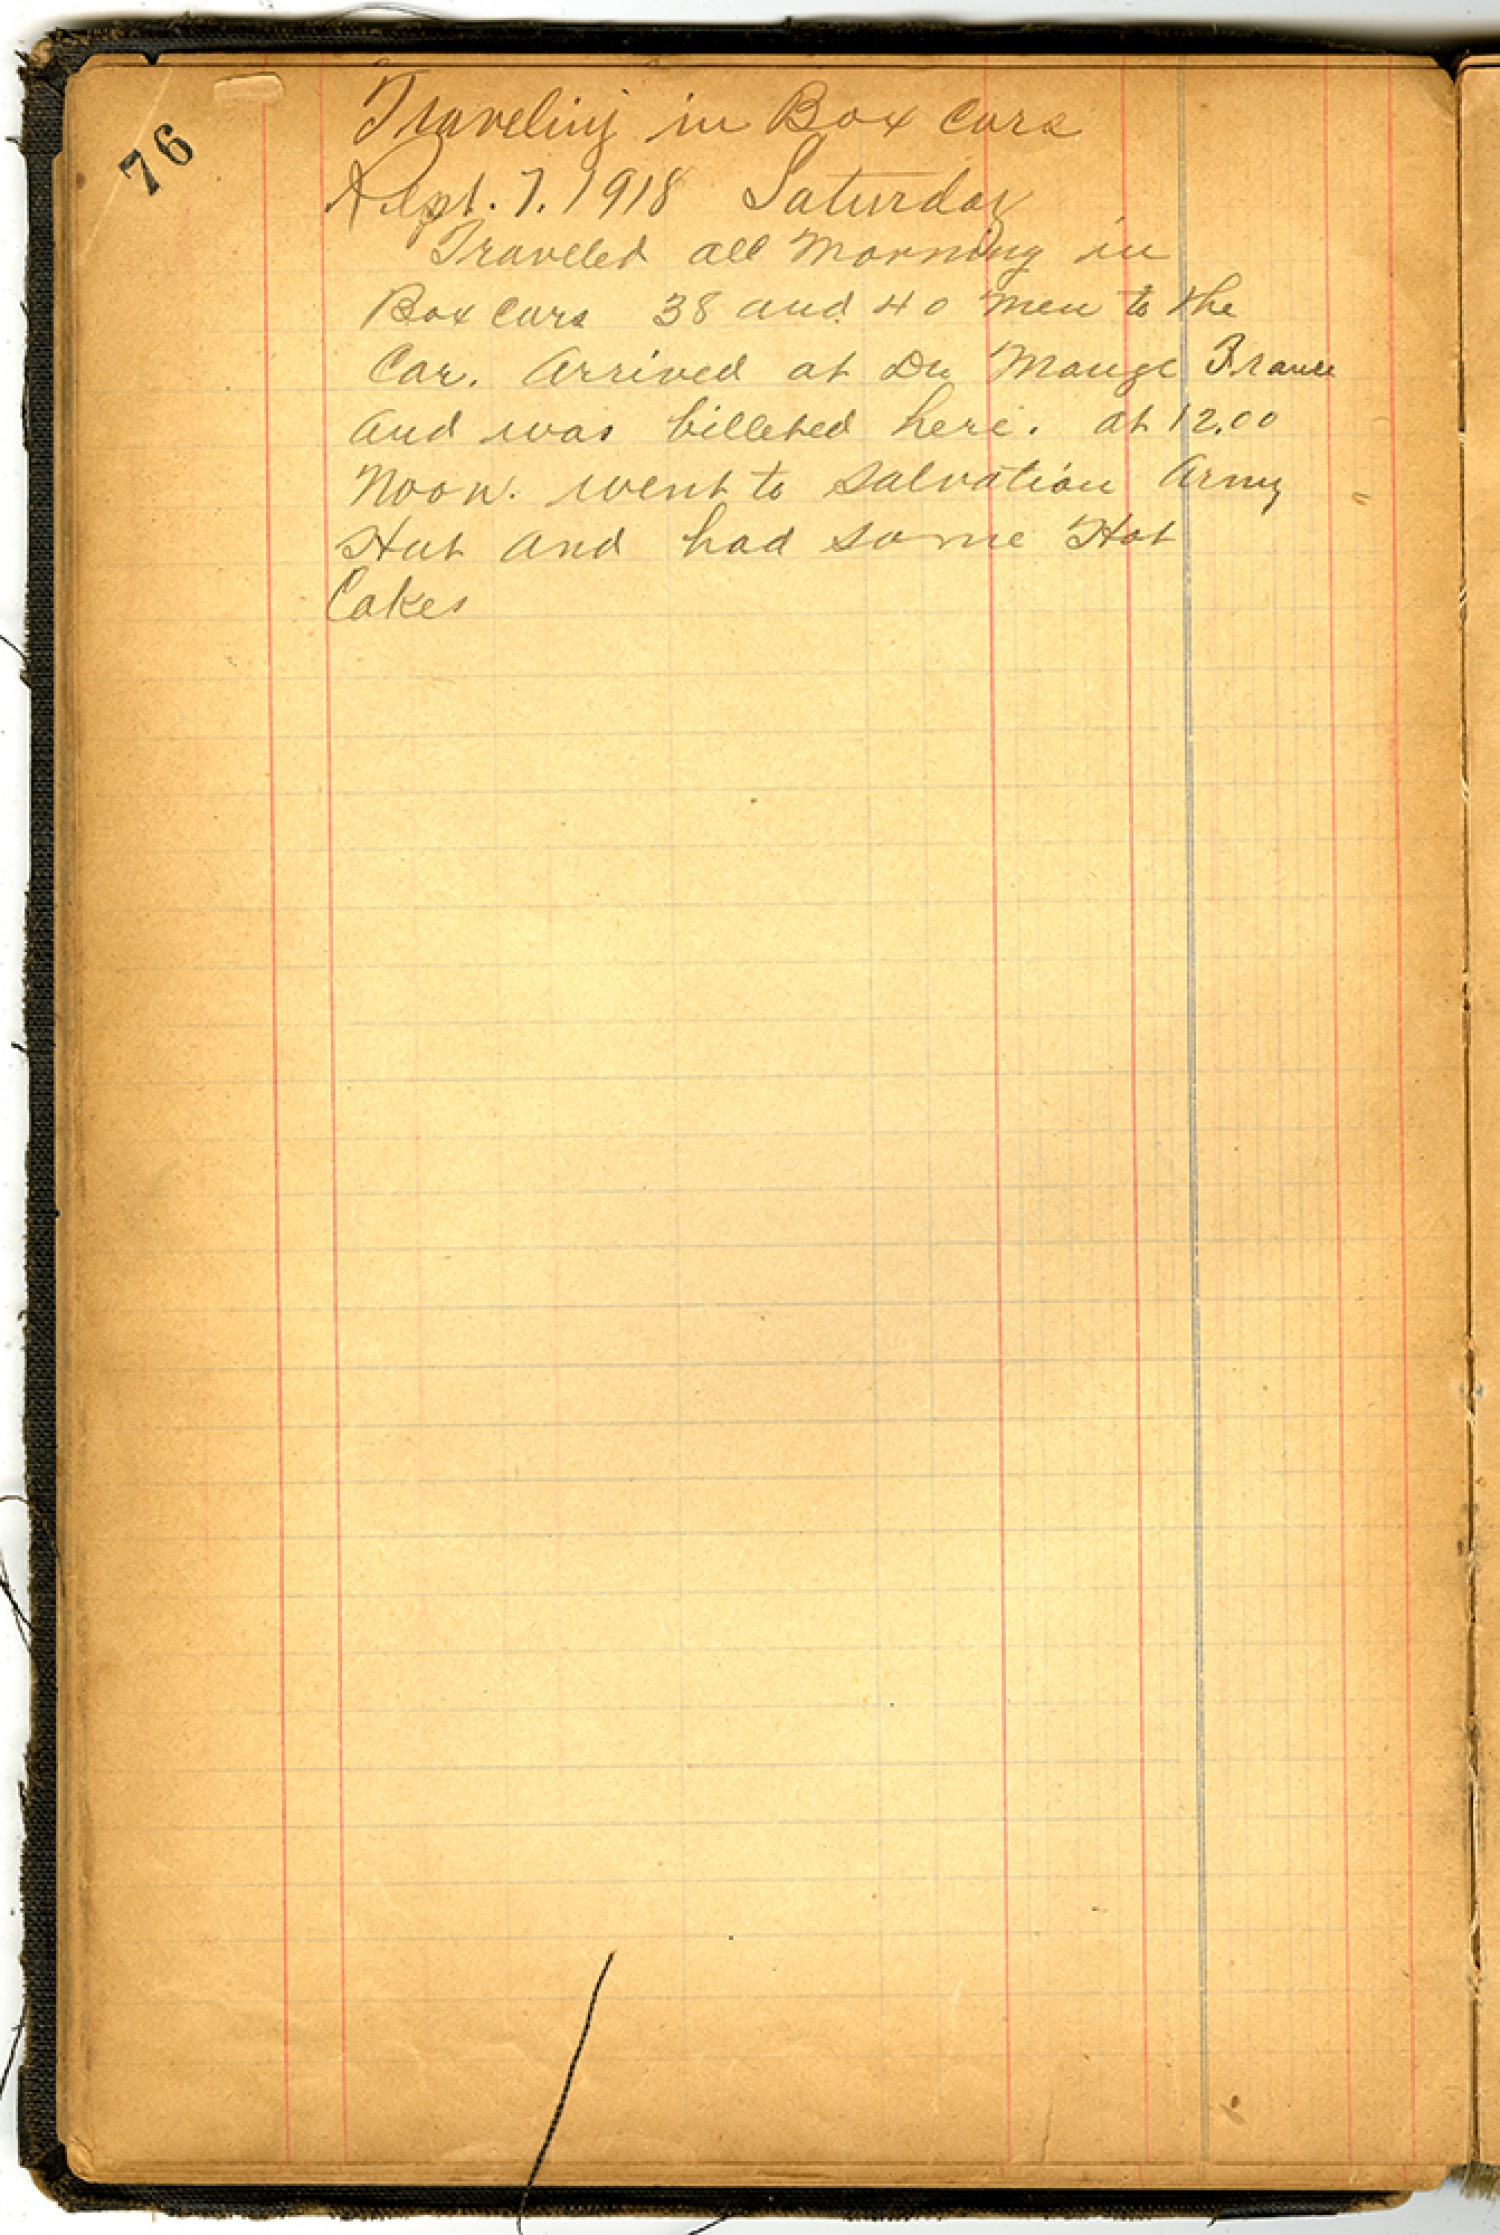 76
Traveling in Box Cars
Sept. 7. 1918 Saturday
Traveled all Morning in
Box Cars 38 and 40 Men to the
Car. Arrived at Du Mange France
and was billeted here. at 12.00
Noon. went to Salvation Army
Hut and had some Hot
Cakes